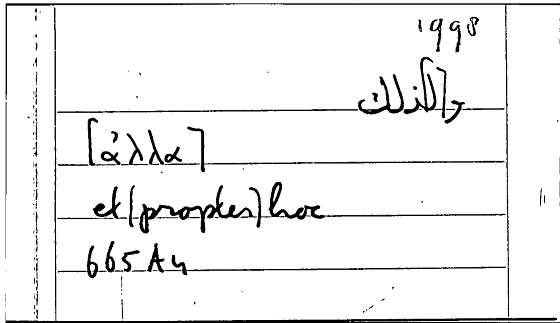 1998
و[لذلك
[ἀλλα]
et(propter)hoc
665A4